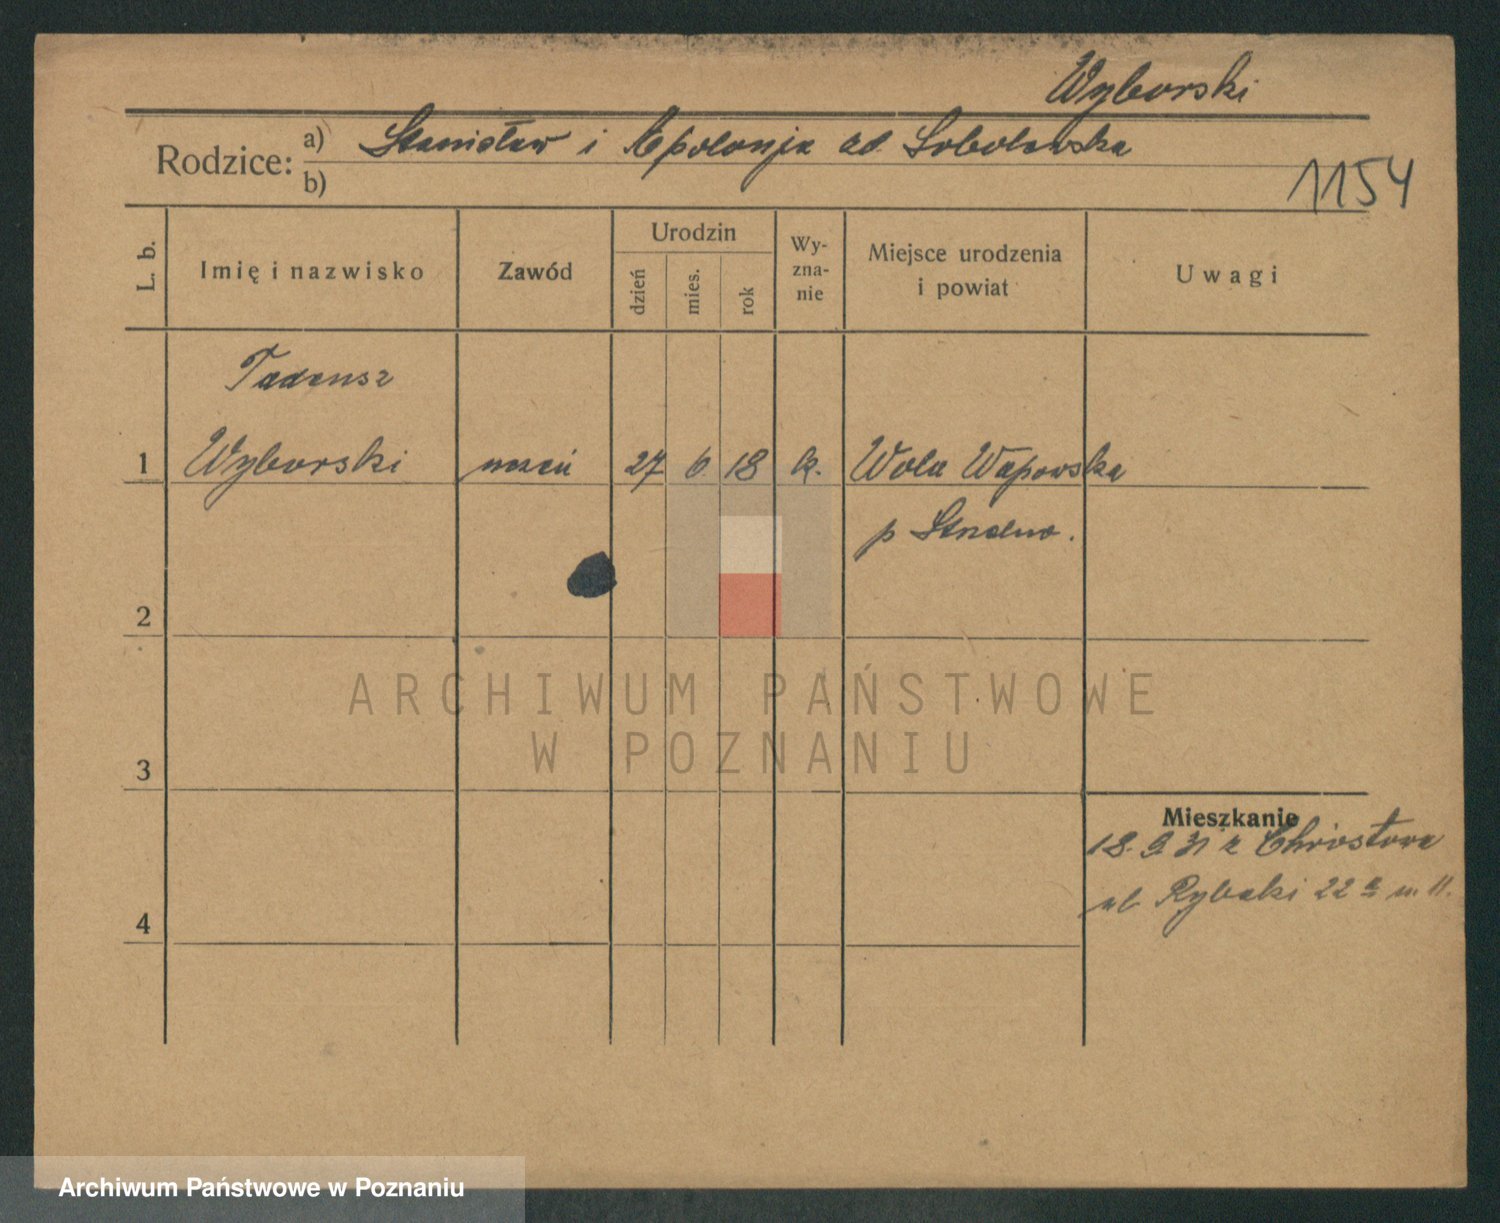 Wyborski
Rodzice: a) Stanisław i Apolonja zd. Sobolewska
b)
1154
L. b.
Imię i nazwisko
Zawód
Urodzin
dzień
mies.
rok
Wy-
zna-
nie
Miejsce urodzenia
i powiat
Uwagi
Tadeusz
1 Wyborski uczeń 27 6 18 k. Wola Wapowska
p Strzelno.
2
3
ARCHIWUM PAŃSTWOWE
W POZNANIU
Mieszkanie
18. 9 31 z
4
ul Rybaki 22 a m. 11.
Archiwum Państwowe w Poznaniu